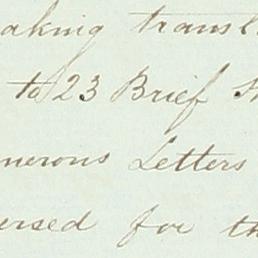 aking transl
to 23 Brief
merous Letters
ersed for th